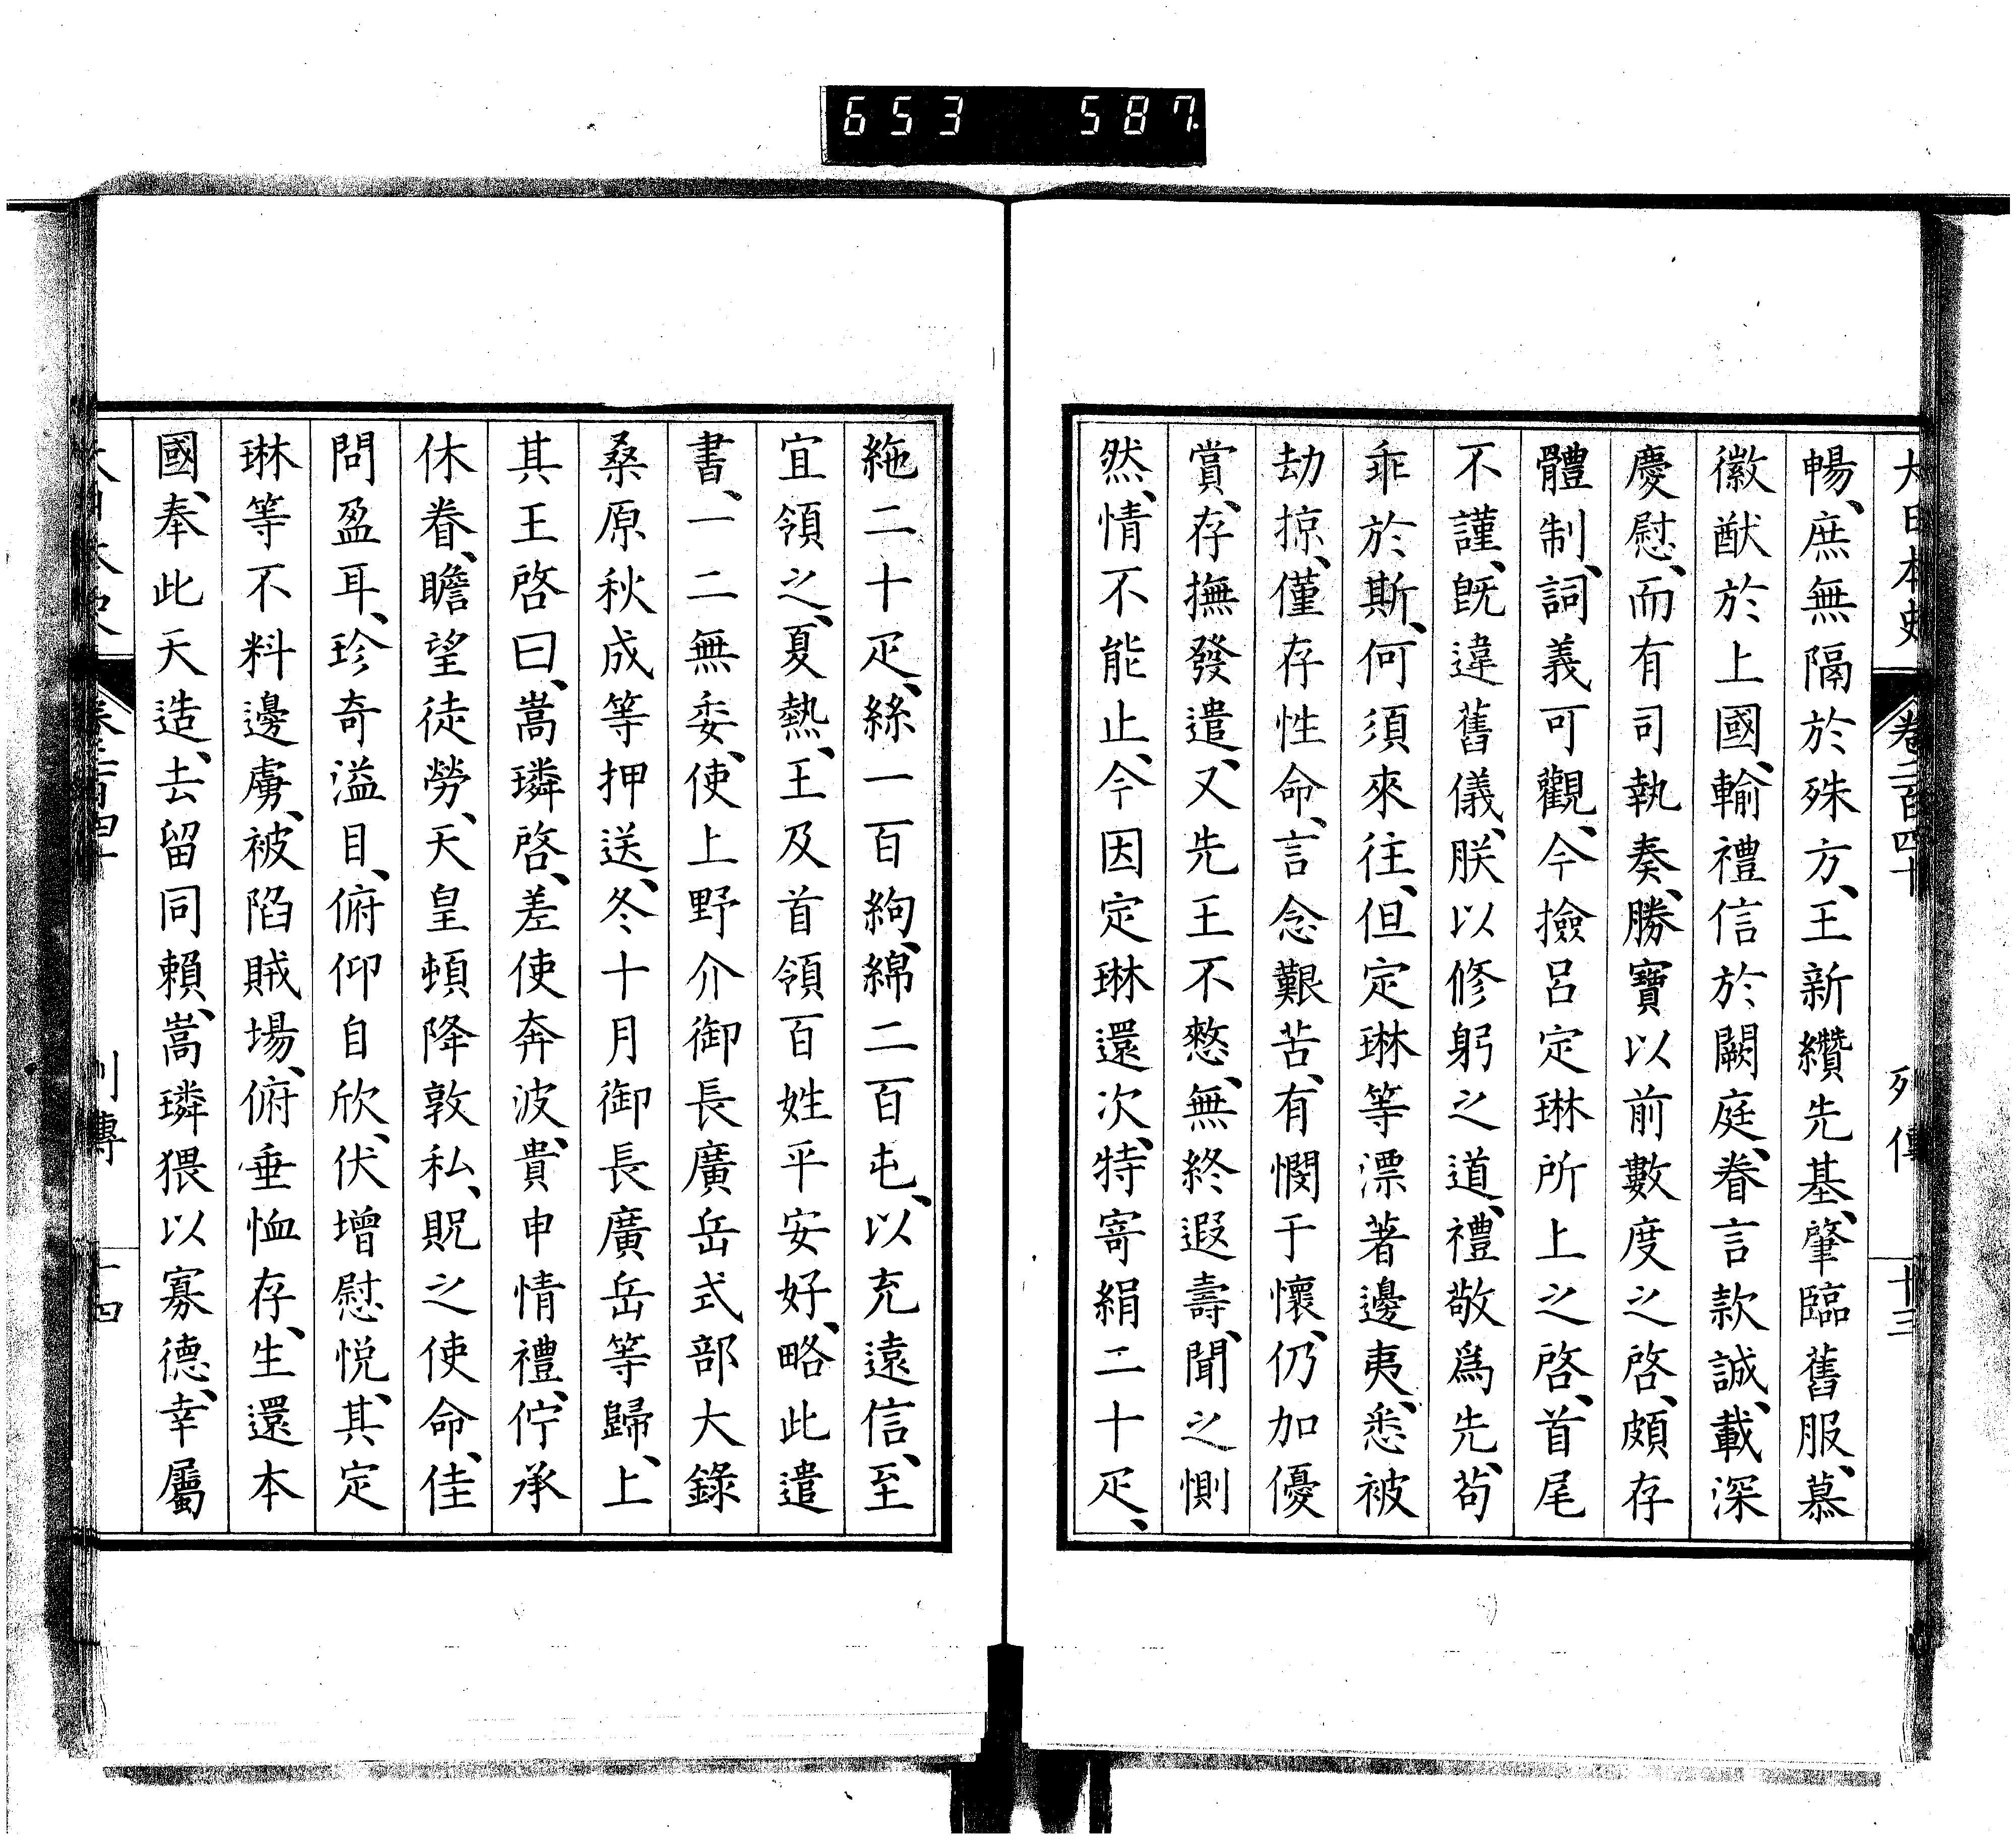 653 587
大日本史 卷二百四十 列傳 十三
暢、庶無隔於殊方、王新纘先基、肇臨舊服、慕
徽猷於上國、輸禮信於闕庭、眷言款誠、載深
慶慰、而有司執奏、勝寶以前數度之啓、頗存
體制、詞義可觀、今撿呂定琳所上之啓、首尾
不謹、旣違舊儀、朕以修躬之道、禮敬爲先、苟
乖於斯、何須來往、但定琳等漂著邊夷、悉被
劫掠、僅存性命、言念艱苦、有憫于懷、仍加優
賞、存撫發遣、又先王不憗、無終遐壽、聞之惻
然、情不能止、今因定琳還次、特寄絹二十疋、
絁二十疋、絲一百絇、綿二百屯、以充遠信、至
宜領之、夏熱、王及首領百姓平安好、略此遣
書、一二無委、使上野介御長廣岳式部大錄
桑原秋成等押送、冬十月御長廣岳等歸、上
其王啓曰、嵩璘啓、差使奔波、貴申情禮、佇承
休眷、瞻望徒勞、天皇頓降敦私、貺之使命、佳
問盈耳、珍奇溢目、俯仰自欣、伏增慰悅、其定
琳等不料邊虜、被陷賊場、俯垂恤存、生還本
國、奉此天造、去留同賴、嵩璘猥以寡德、幸屬
大日本史 卷二百四十 列傳 十四